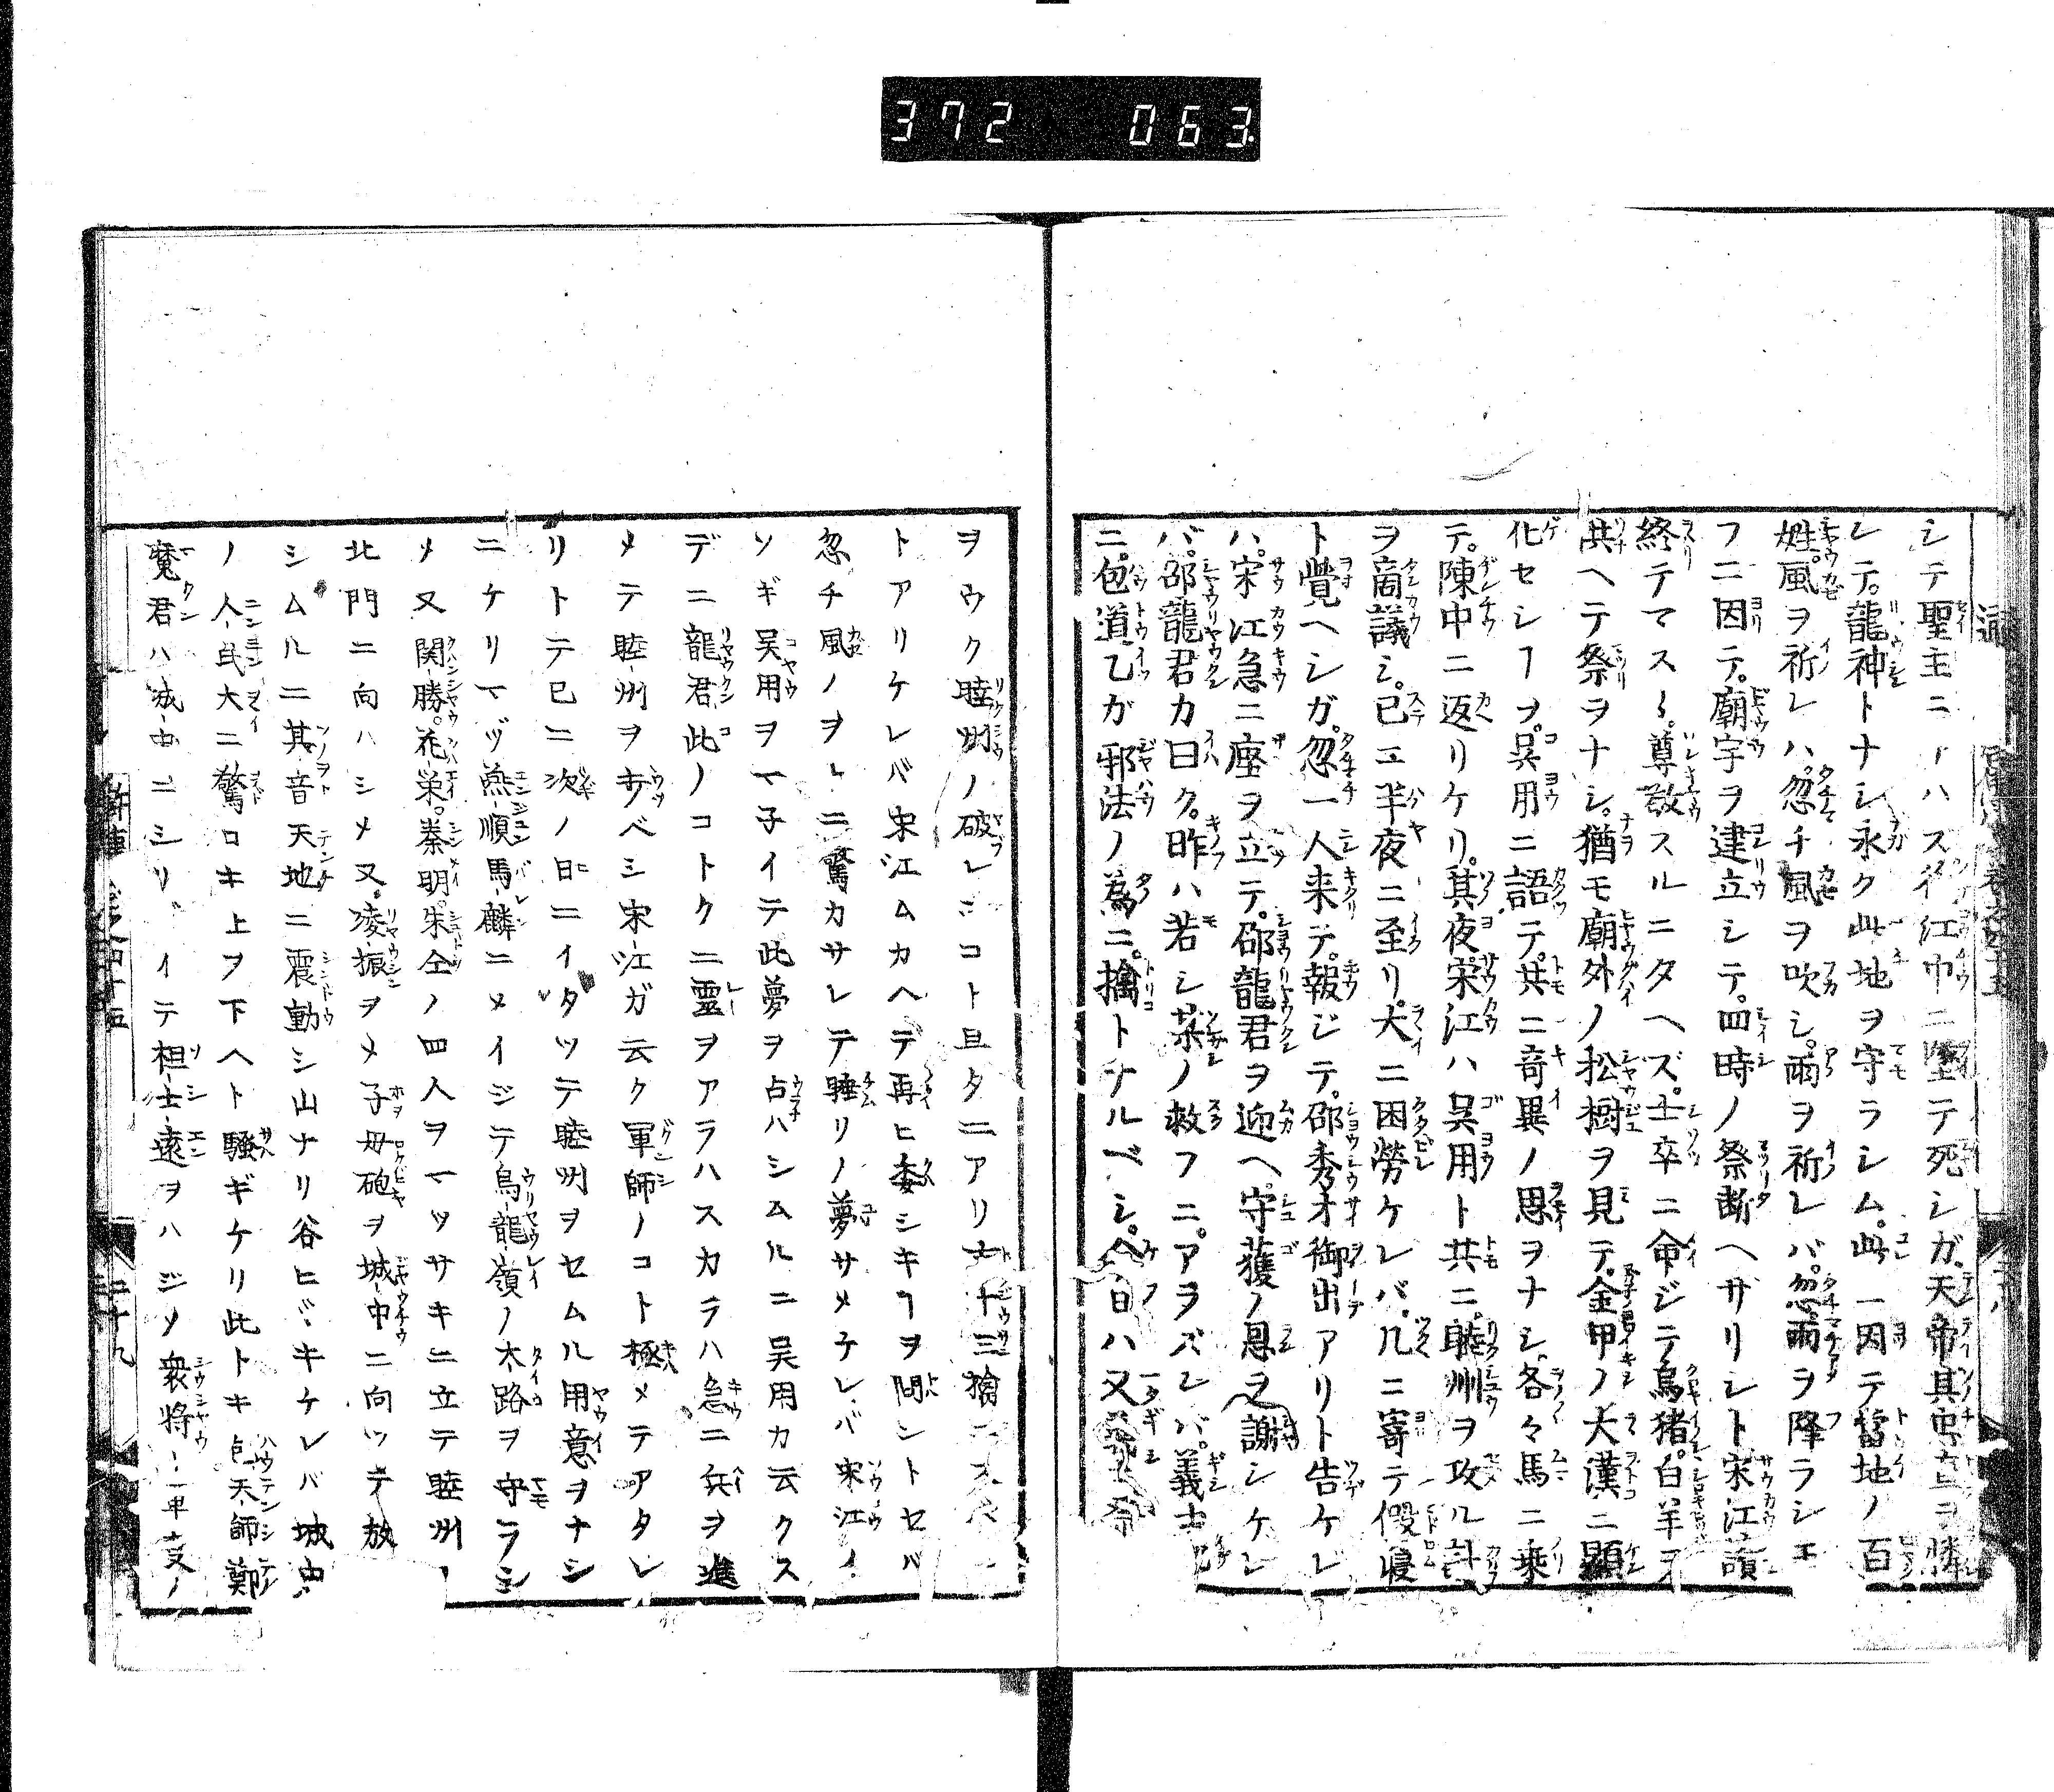 372 063
シテ聖主ニ ハス 江中ニ墜テ死シガ。天帝其忠立ヲ憐
レテ。龍神トナシ永ク此地ヲ守ラシム。此ニ因テ當地ノ百
姓。風ヲ祈レハ。忽チ風ヲ吹シ。雨ヲ祈レバ。忽雨ヲ降ラシエ
フニ因テ。廟宇ヲ建立シテ。四時ノ祭断ヘザリシト宋江讀
終テマス〱。尊敬スルニタヘズ。士卒ニ命ジテ烏猪。白羊ヲ
供ヘテ祭ヲナシ。猶モ廟外ノ松樹ヲ見テ。金甲ノ大漢ニ顯
化セシヿヲ。呉用ニ語テ。共ニ奇異ノ思ヲナシ。各々馬ニ乗
テ。陳中ニ返リケリ。其夜。宋江ハ呉用ト共ニ。睦州ヲ攻ル計
ヲ商議シ。已ニ半夜ニ至リ。大ニ困勞ケレバ。几ニ寄テ假寝
ト覺ヘシガ。忽一人来テ。報ジテ。邵秀才御出アリト告ケレ
ハ。宋江急ニ座ヲ立テ。邵龍君ヲ迎ヘ。守護ノ恩ヲ謝シケレ
バ。邵龍君カ曰ク。昨ハ若シ某ノ救フニ。アヲズレバ。義士
ニ。包道乙ガ邪法ノ為ニ。擒トナルベシ。今日ハ又
ヲウク睦州ノ破レンコト旦タニアリ 十三擒
トアリケレバ宋江ムカヘテ再ヒ委シキヿヲ問ントセバ
忽チ風ノヲトニ驚カサレテ睡リノ夢サメケレバ宋江イ
ソギ呉用ヲマ子イテ此夢ヲ占ハシムルニ呉用カ云クス
デニ龍君此ノコトクニ靈ヲアラハスカラハ急ニ兵ヲ進
メテ睦州ヲ歩ベシ宋江ガ云ク軍師ノコト極メテアタレ
リトテ已ニ次ノ日ニイタツテ睦州ヲセムル用意ヲナシ
ニケリマヅ燕順馬麟ニメイジテ烏龍嶺ノ大路ヲ守ラシ
メ又関勝。花栄。秦明。朱仝ノ四人ヲマツサキニ立テ睦州ノ
北門ニ向ハシメ又。凌振ヲメ子母砲ヲ城中ニ向ツテ放
シムルニ其音天地ニ震動シ山ナリ谷ヒヾキケレバ城中
ノ人民大ニ驚ロキ上ヲ下ヘト騒ギケリ此トキ包天師鄭
魔君ハ城中ニシリ イテ祖士遠ヲハジメ衆將
二十九